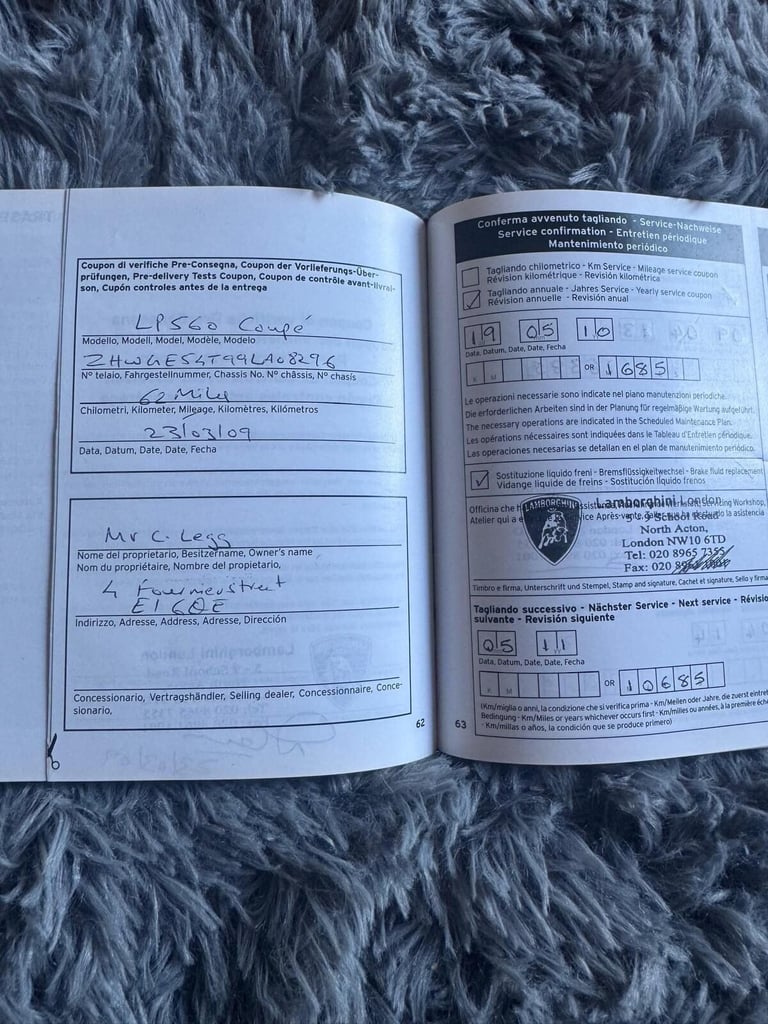 Coupon di verifiche Pre-Consegna, Coupon der Vorlieferungs-Über-
prüfungen, Pre-delivery Tests Coupon, Coupon de contrôle avant-livrai-
son, Cupón controles antes de la entrega
LP560 Coupé
Modello, Modell, Model, Modèle, Modelo
ZHWGE54T99LA08296
Nº telaio, Fahrgestellnummer, Chassis No. Nº châssis, Nº chasis
62 Miles
Chilometri, Kilometer, Mileage, Kilomètres, Kilómetros
23/03/09
Data, Datum, Date, Date, Fecha
Mr C. Legg
Nome del proprietario, Besitzername, Owner's name
Nom du propriétaire, Nombre del propietario,
4 Fournier street
E1 6QE
Indirizzo, Adresse, Address, Adresse, Dirección
Concessionario, Vertragshändler, Selling dealer, Concessionnaire, Conce-
sionario,
62
Conferma avvenuto tagliando - Service-Nachweise
Service confirmation - Entretien périodique
Mantenimiento periódico
Tagliando chilometrico - Km Service - Mileage service coupon
Révision kilométrique - Revisión kilométrica
Tagliando annuale - Jahres Service - Yearly service coupon
Révision annuelle - Revisión anual
19 05 10
Data, Datum, Date, Date, Fecha
K M OR 1685
Le operazioni necessarie sono indicate nel piano manutenzioni periodiche.
Die erforderlichen Arbeiten sind in der Planung für regelmäßige Wartung aufgeführt.
The necessary operations are indicated in the Scheduled Maintenance Plan.
Les opérations nécessaires sont indiquées dans le Tableau d'Entretien périodique.
Las operaciones necesarias se detallan en el plan de mantenimiento periódico.
Sostituzione liquido freni - Bremsflüssigkeitwechsel - Brake fluid replacement
Vidange liquide de freins - Sostitución líquido frenos
Officina che Servicing Workshop,
Atelier qui a Service Après-vente la asistencia
LAMBORGHINI
Lamborghini London
5 - 9 School Road
North Acton,
London NW10 6TD
Tel: 020 8965 7355
Fax: 020
Timbro e firma, Unterschrift und Stempel, Stamp and signature, Cachet et signature, Sello y firma
Tagliando successivo - Nächster Service - Next service - Révision
suivante - Revisión siguiente
05 11
Data, Datum, Date, Date, Fecha
K M OR 10685
(Km/miglia o anni, la condizione che si verifica prima - Km/Meilen oder Jahre, die zuerst
Bedingung - Km/Miles or years whichever occurs first - Km/milles ou années, à la première
- Km/millas o años, la condición que se produce primero)
63